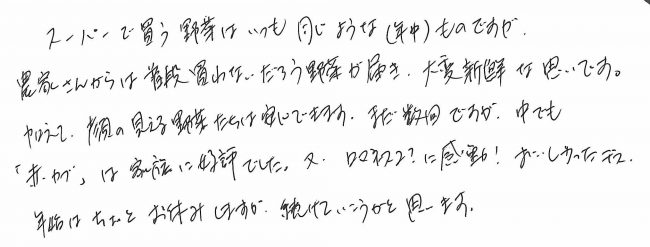 スーパーで買う野菜はいつも同じような(年中)ものですが、
農家さんからは普段買わないだろう野菜が届き、大変新鮮な思いです。
加えて、顔の見える野菜たちは安心できます。まだ数回ですが、中でも
「赤カブ」は家族に好評でした。又、ロマネスコ?に感動!おいしかったデス。
年始はちょっとお休みしますが、続けていこうかと思います。